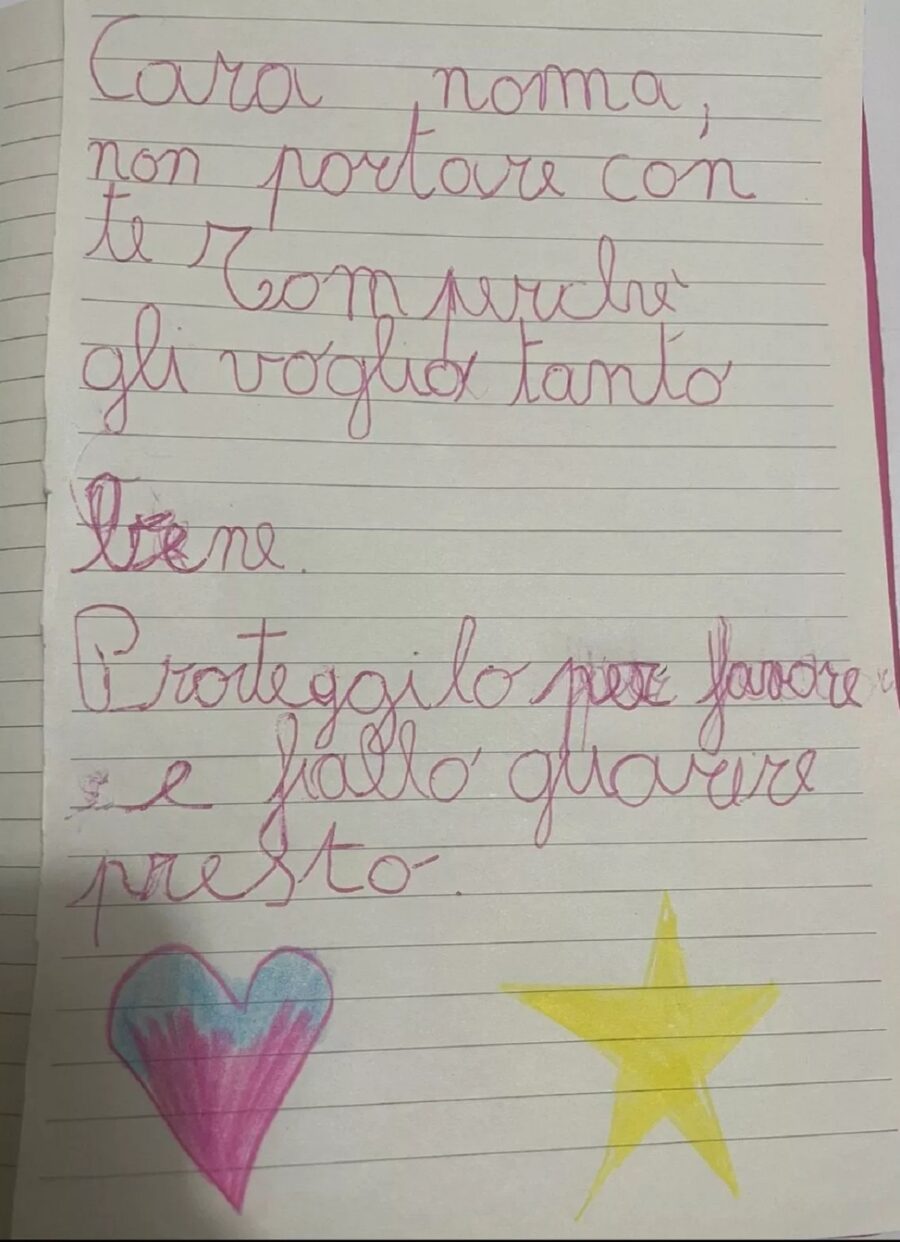 Cara nonna,
non portare con
te Tom perchè
gli voglio tanto
bene.
Proteggilo per favore
e fallo guarire
presto.